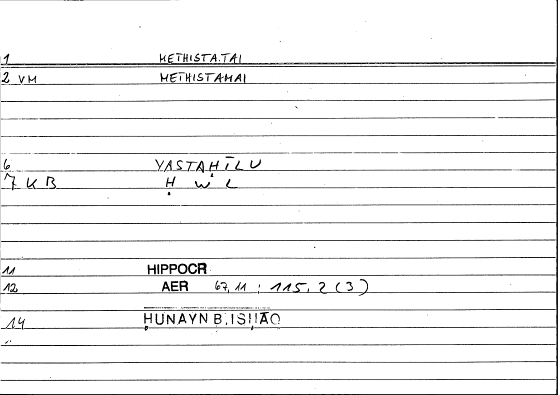 1 METHISTATAI
2 VM METHISTAMAI
6 YASTAḤĪLU
7 KB Ḥ W L
11 HIPPOCR
12 AER 67,11 ; 115,2 (3)
14 ḤUNAYN B. ISḤĀQ